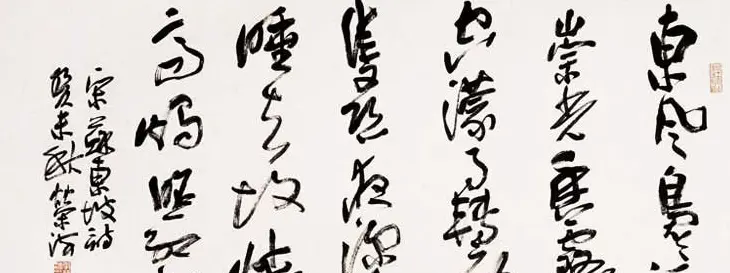 東風裊
崇光香霧
空濛月轉
隻恐夜深
睡去故燒
高燭照紅
宋蘇東坡詩
癸未秋